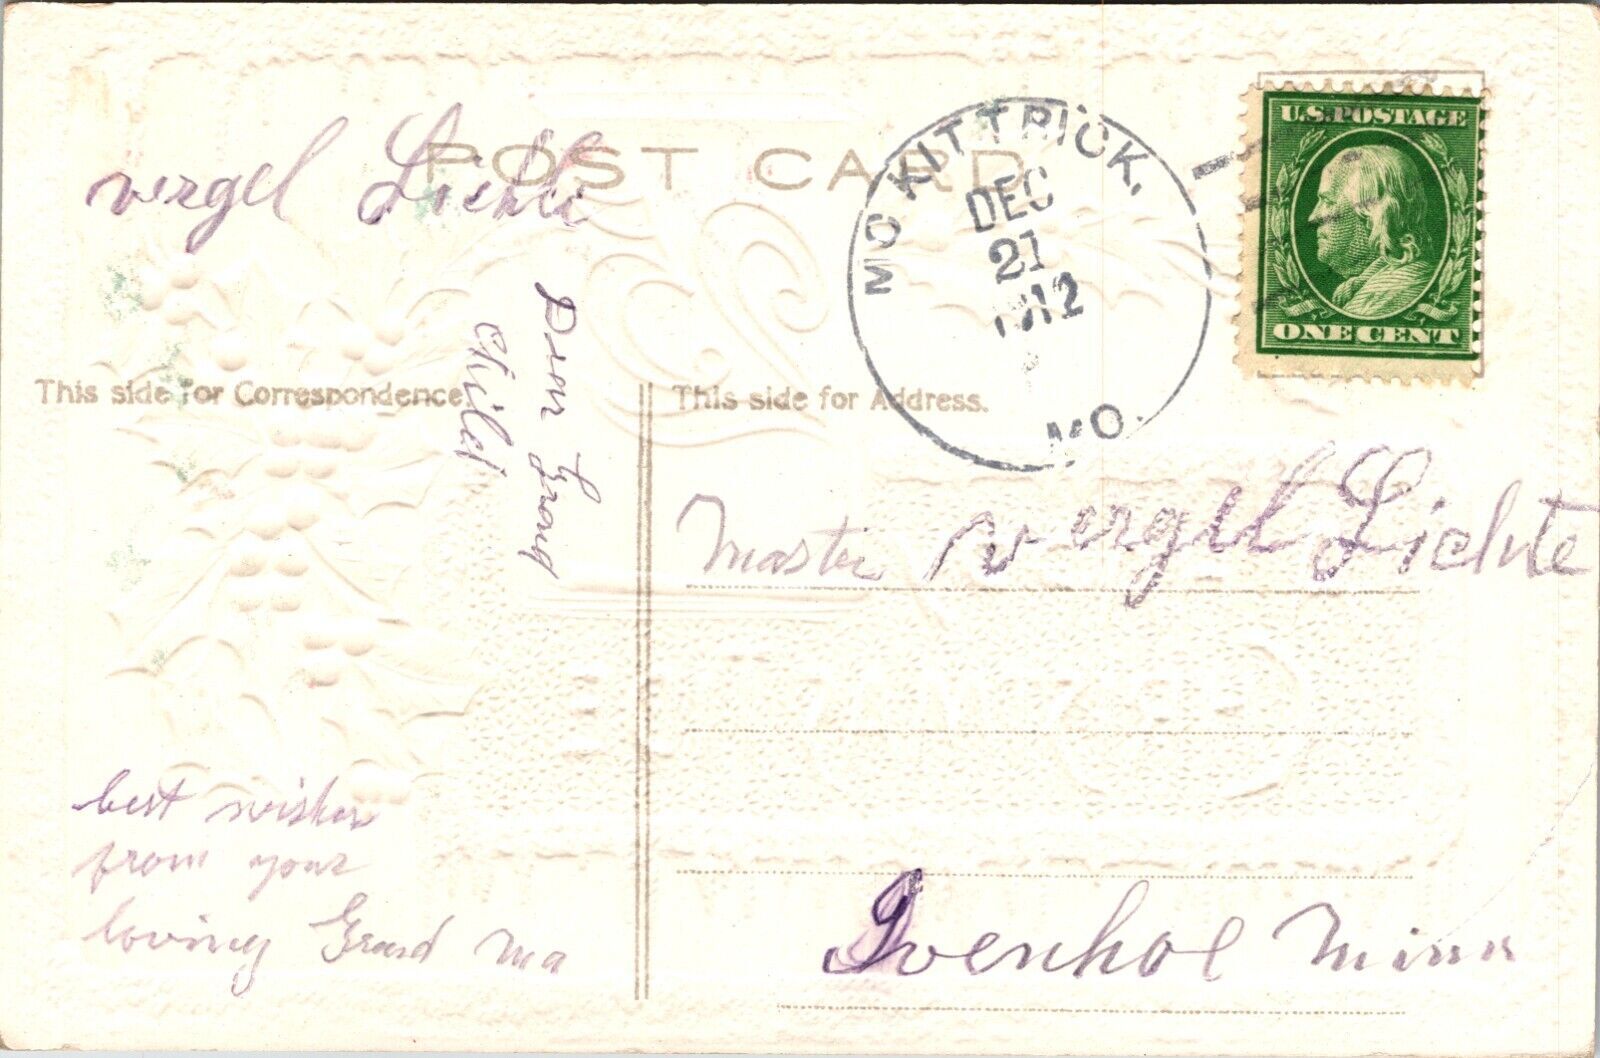 POST CARD
MC KITTRICK,
DEC
21
1912
MO.
U.S. POSTAGE
ONE CENT
vergel Lichte
Dem Grand
Child
This side for Correspondence
This side for Address.
Master vergel Lichte
best wishes
from your
loving Grand Ma
Ivenhoe Minn